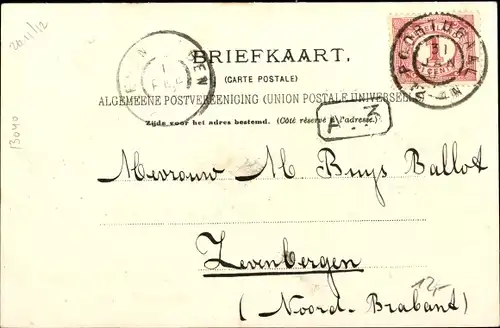 20.11/12
BRIEFKAART.
(CARTE POSTALE)
ALGEMEENE POSTVEREENIGING (UNION POSTALE UNIVERSELLE)
Zijde voor het adres bestemd. (Côté réservé à l'adresse.)
A 3
13040
Mevrouw M Buys Ballot
Zevenbergen
(Noord-Brabant)
12,-